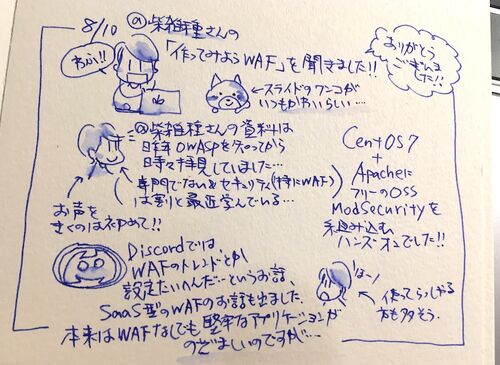 8/10 @柴雑種さんの
「作ってみようWAF」を聞きました!!
ありがとう
ございました!!
わふ!!
←スライドのワンコが
いつもかわいらしい…
@柴雑種さんの資料は
日本OWASPを知ってから
時々拝見していました…
専門でない&セキュリティ(特にWAF)
は割と最近学んでいる…
お声を
きくのは初めて!!
CentOS7
+
Apacheに
フリーのOSS
ModSecurityを
組み込む
ハンズオンでした!!
Discordでは、
WAFのトレンドとか
設定たいへんだ…というお話、
SaaS型のWAFのお話も出ました、
本来はWAFなしでも堅牢なアプリケーションが
のぞましいのですが…
ほー!
作ってらっしゃる
方も多そう。